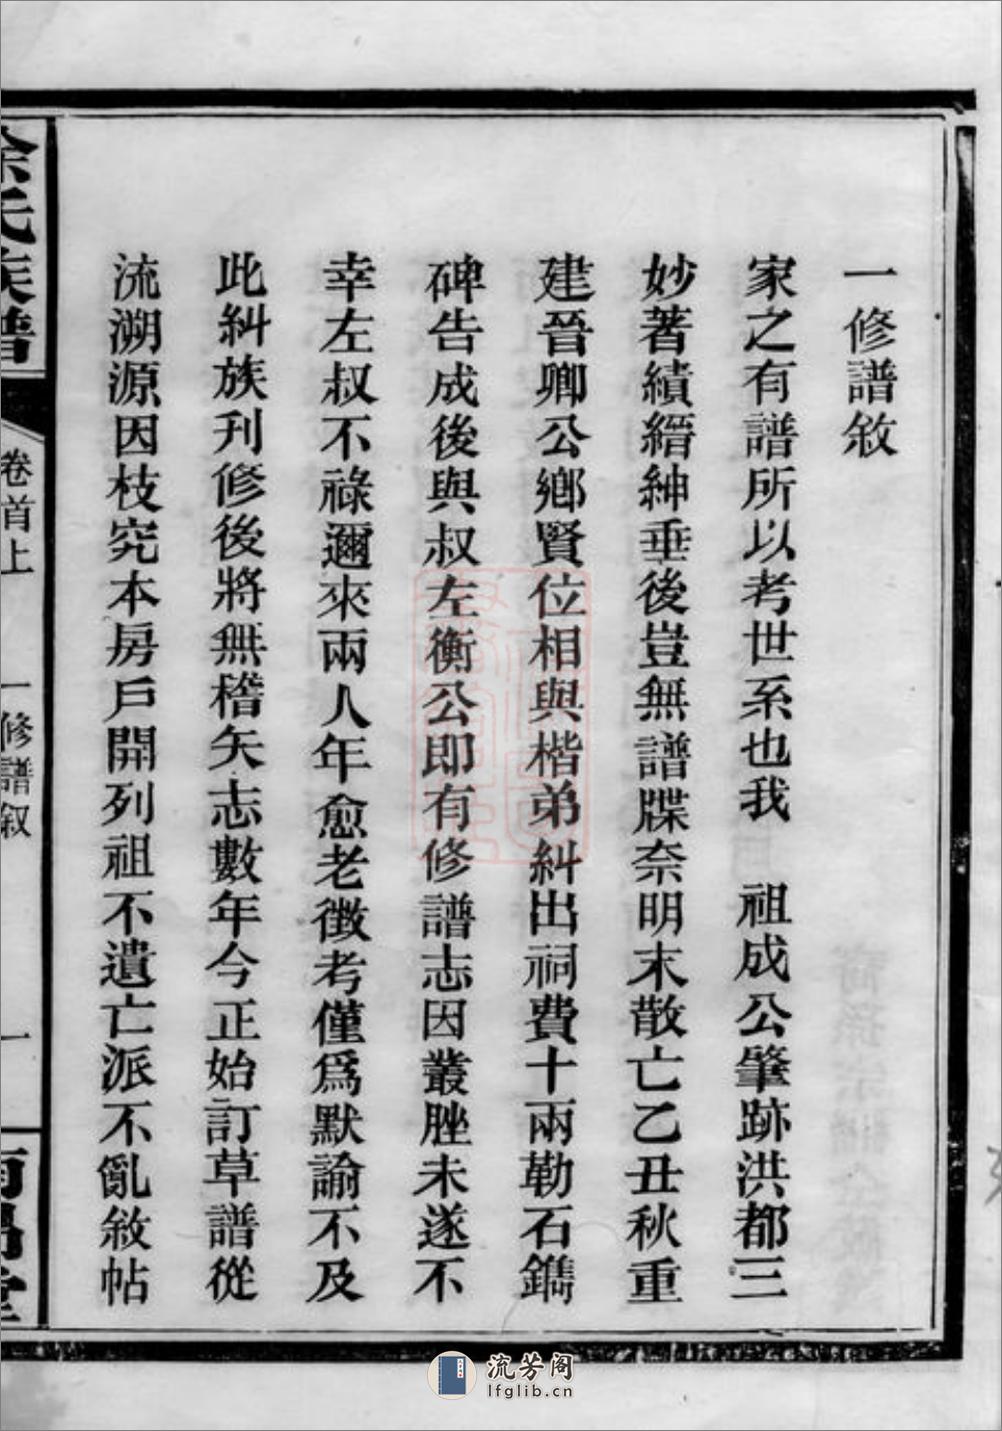 一修譜敘
家之有譜所以考世系也我　祖成公肇跡洪都三
妙著績縉紳垂後豈無譜牒奈明末散亡乙丑秋重
建晉卿公鄉賢位相與楷弟糾出祠費十兩勒石鐫
碑告成後與叔左衡公即有修譜志因叢脞未遂不
幸左叔不祿邇來兩人年愈老徵考僅為默諭不及
此糾族刊修後將無稽矢志數年今正始訂草譜從
流溯源因枝究本房戶開列祖不遺亡派不亂敘帖
徐氏族譜
卷首上
一修譜叙
一
流芳阁
lfglib.cn